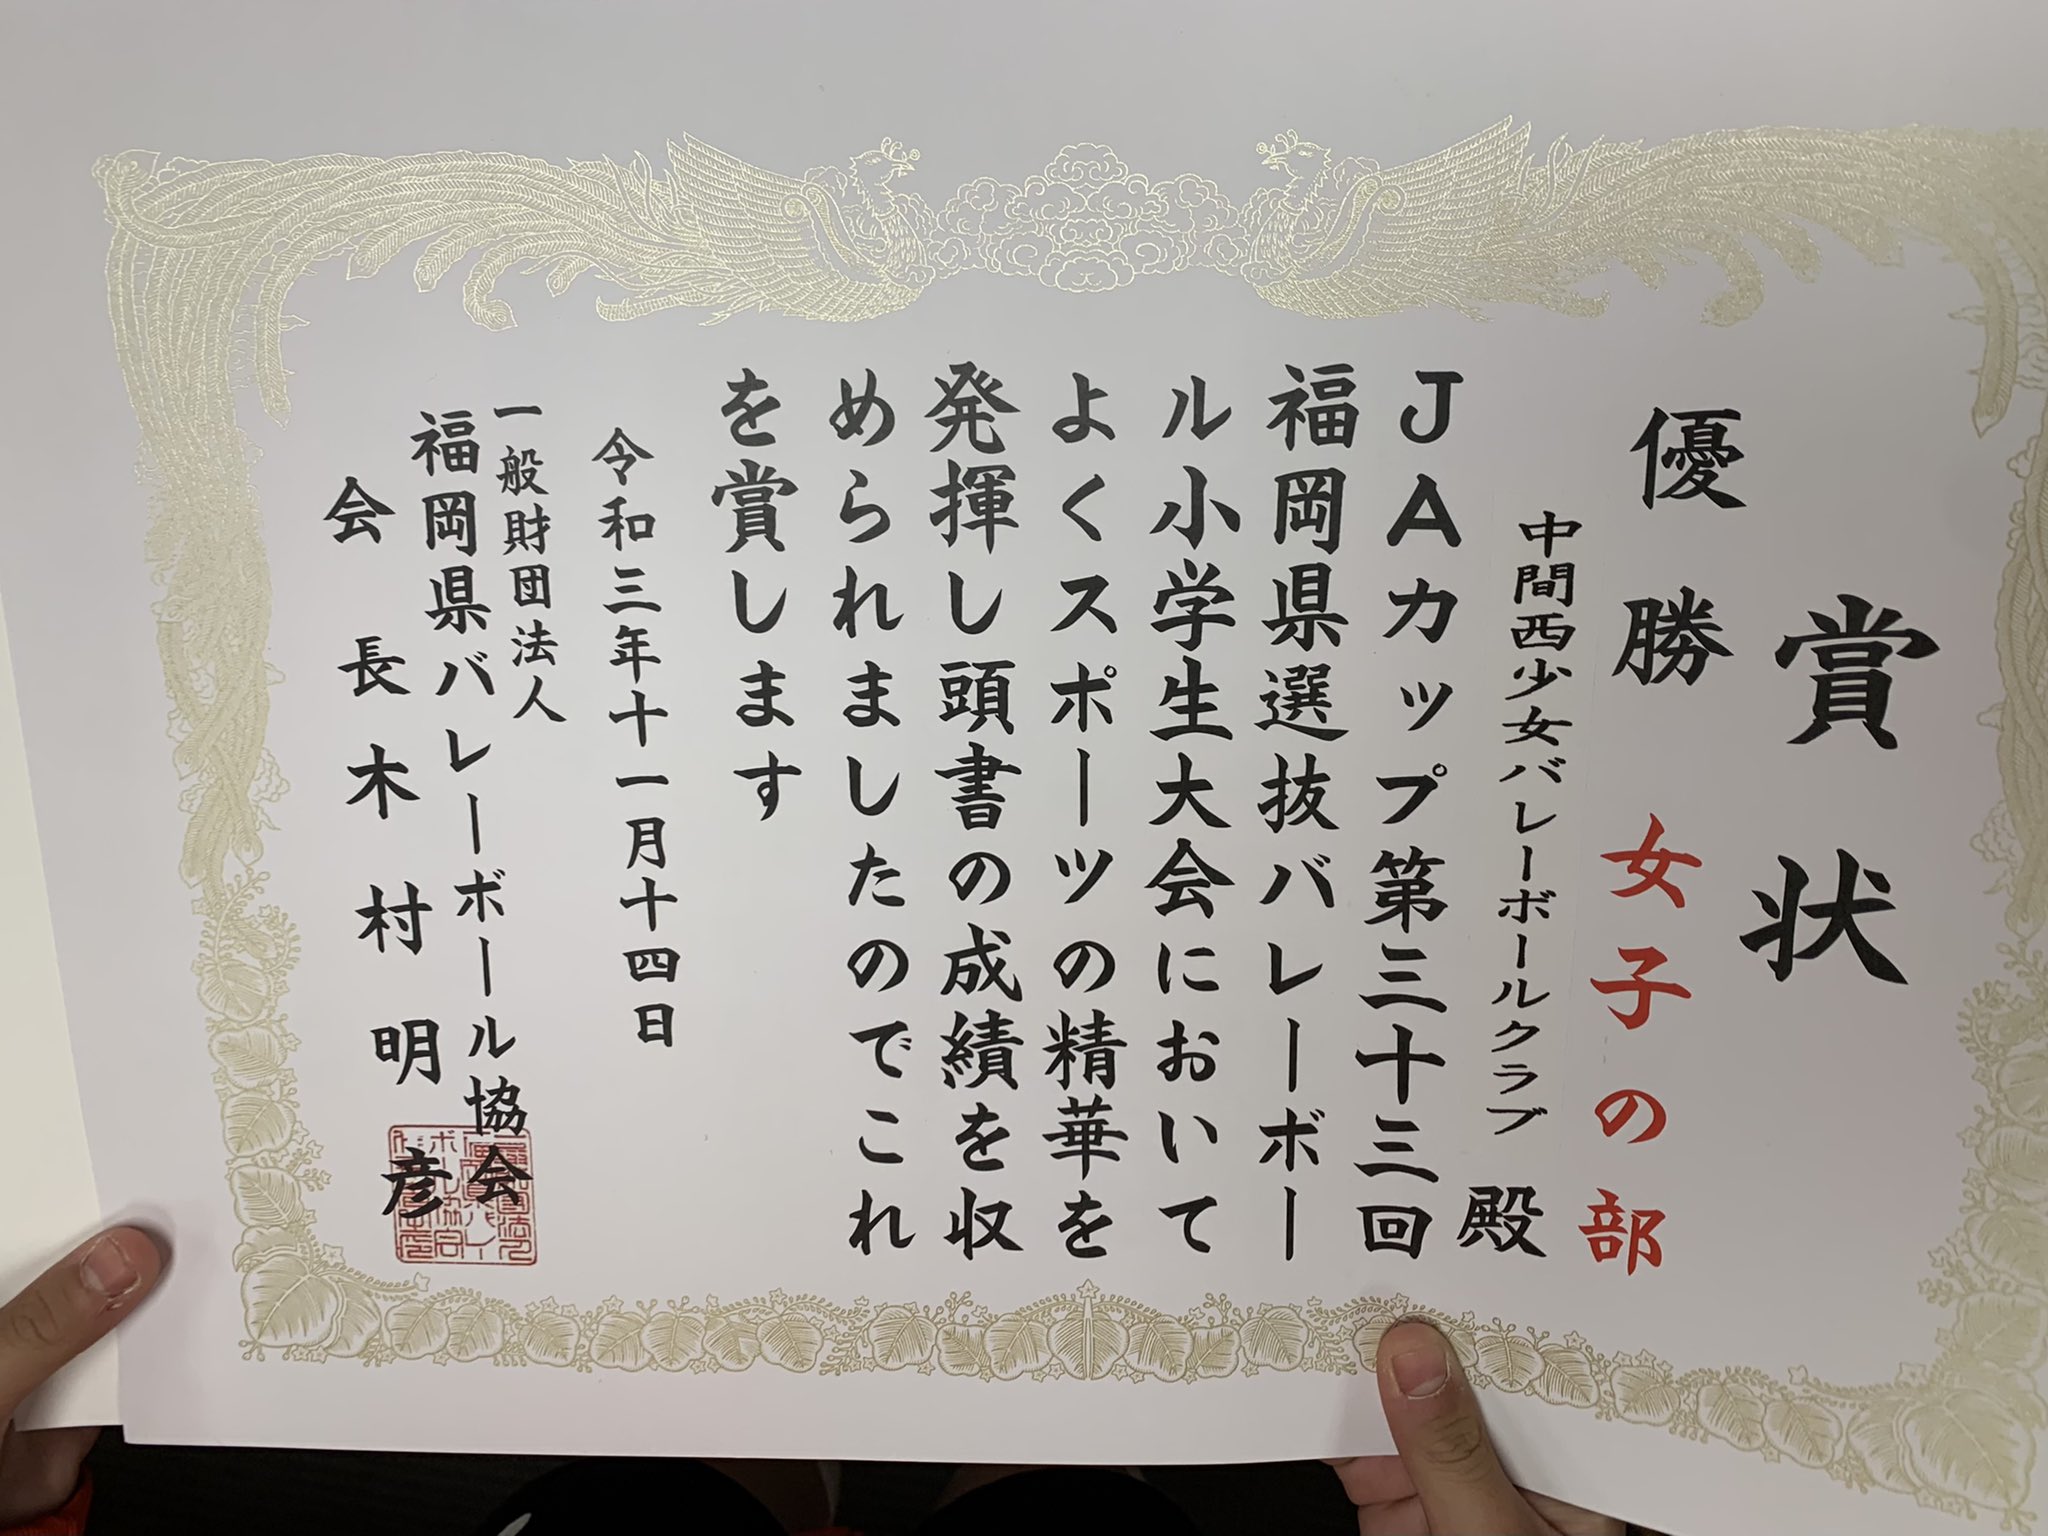 賞状
優勝 女子の部
中間西少女バレーボールクラブ 殿
JAカップ第三十三回
福岡県選抜バレーボー
ル小学生大会において
よくスポーツの精華を
発揮し頭書の成績を収
められましたのでこれ
を賞します
令和三年十一月十四日
一般財団法人
福岡県バレーボール協会
会長木村明彦